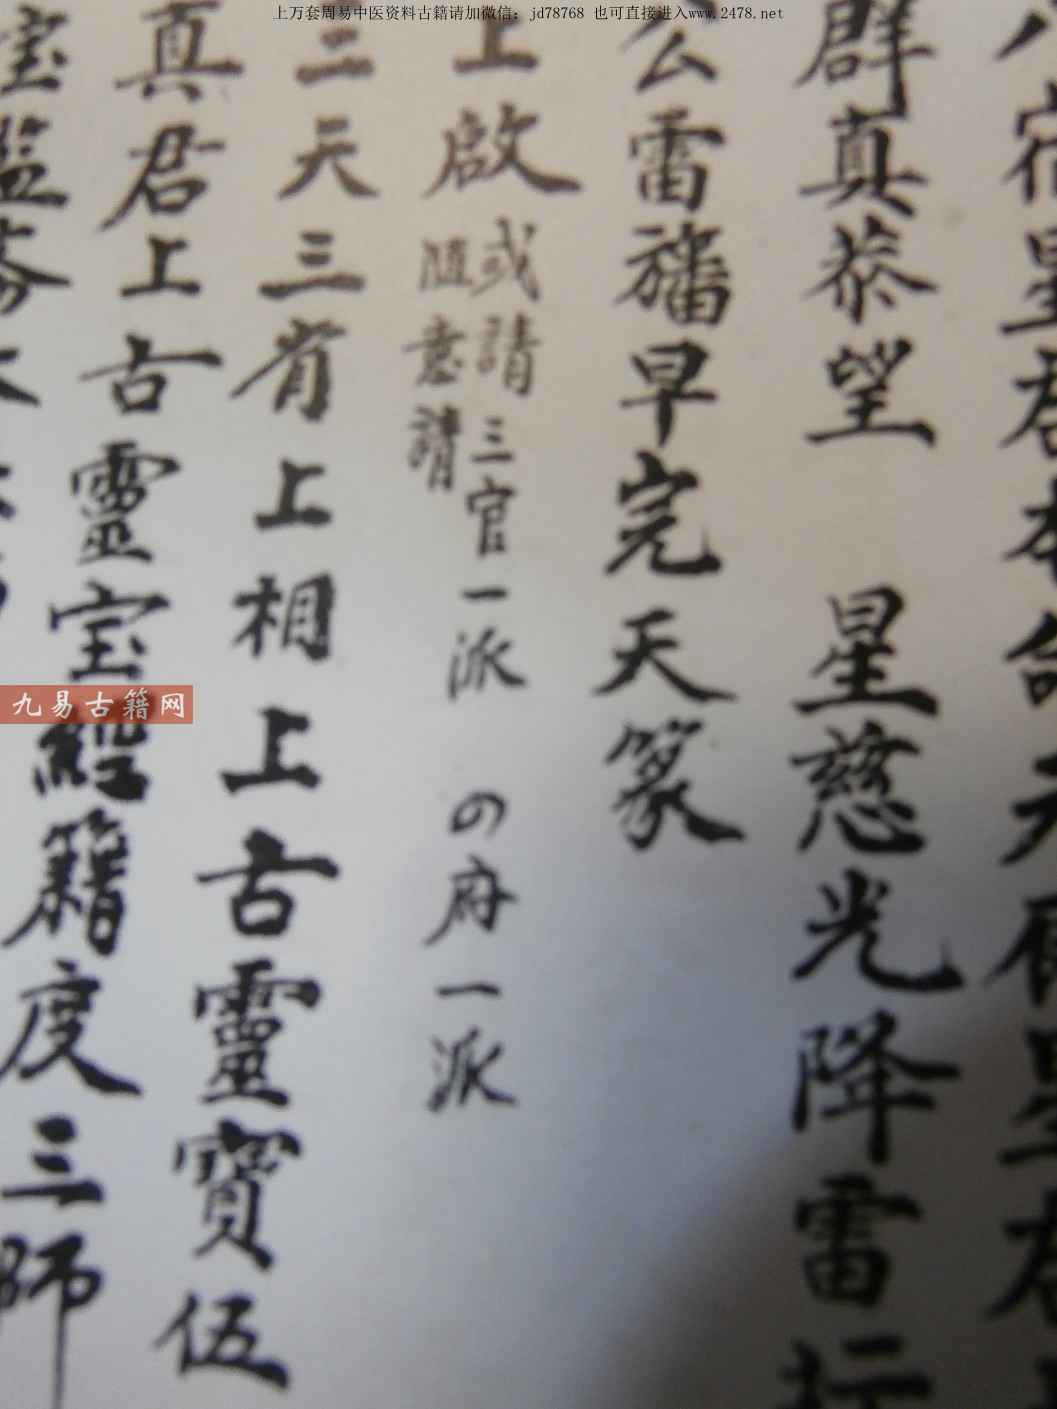 上万套周易中医资料古籍请加微信：jd78768 也可直接进入www.2478.net
宿星君本命元辰星君
群真恭望 星慈光降雷坛
公雷旛早完天篆
上啟
或請三官一派 の府一派
随意請
三天三省上相上古靈寶伍
真君上古靈宝經籍度三師
宝監斋大
九易古籍网